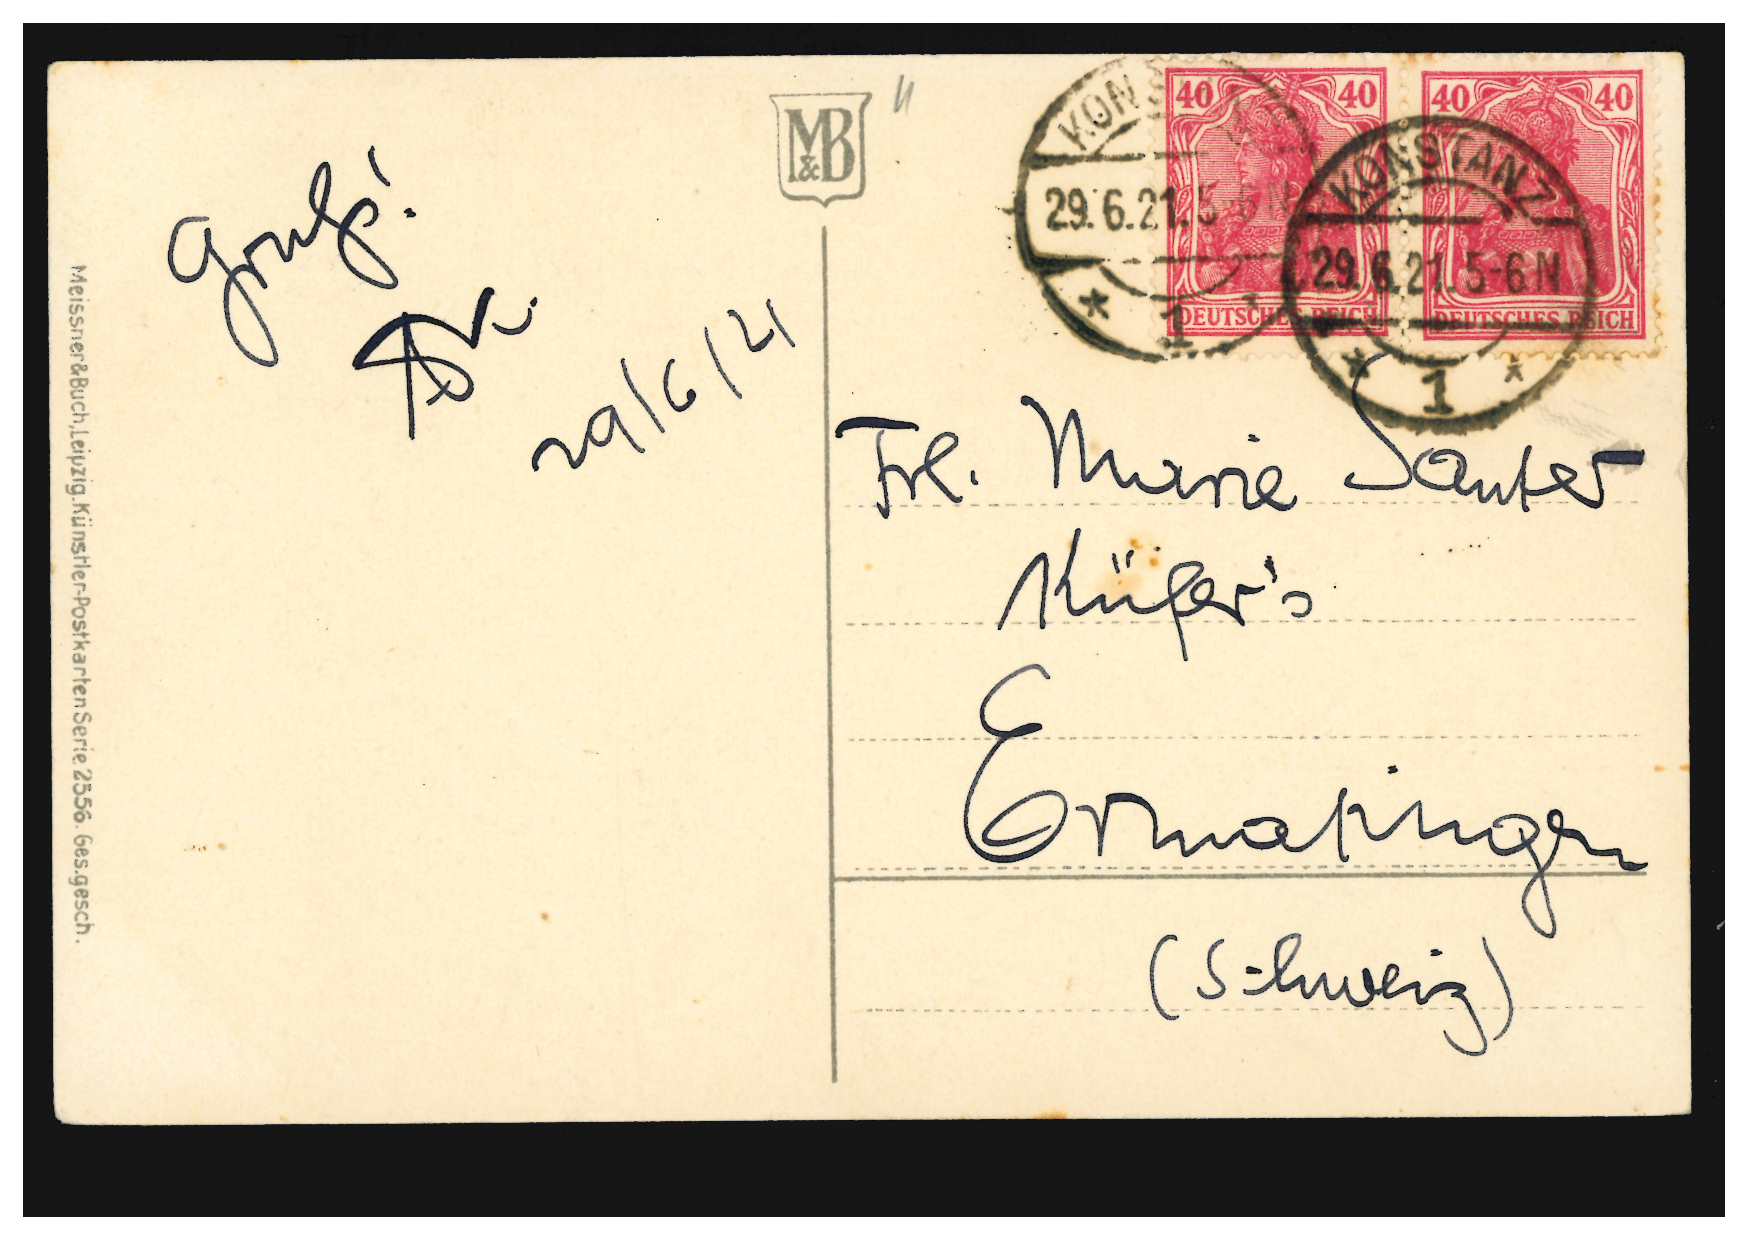 M&B
40 40 40 40
KONSTANZ
29.6.21.5-6N 29.6.21.5-6N
DEUTSCHES REICH DEUTSCHES REICH
* 1 * * 1 *
Gruß!
29/6/21
Meissner&Buch,Leipzig.Künstler-Postkarten Serie 2556. Ges.gesch.
Frl. Marie Sauter
Küfer's
Ermatingen
(Schweiz)